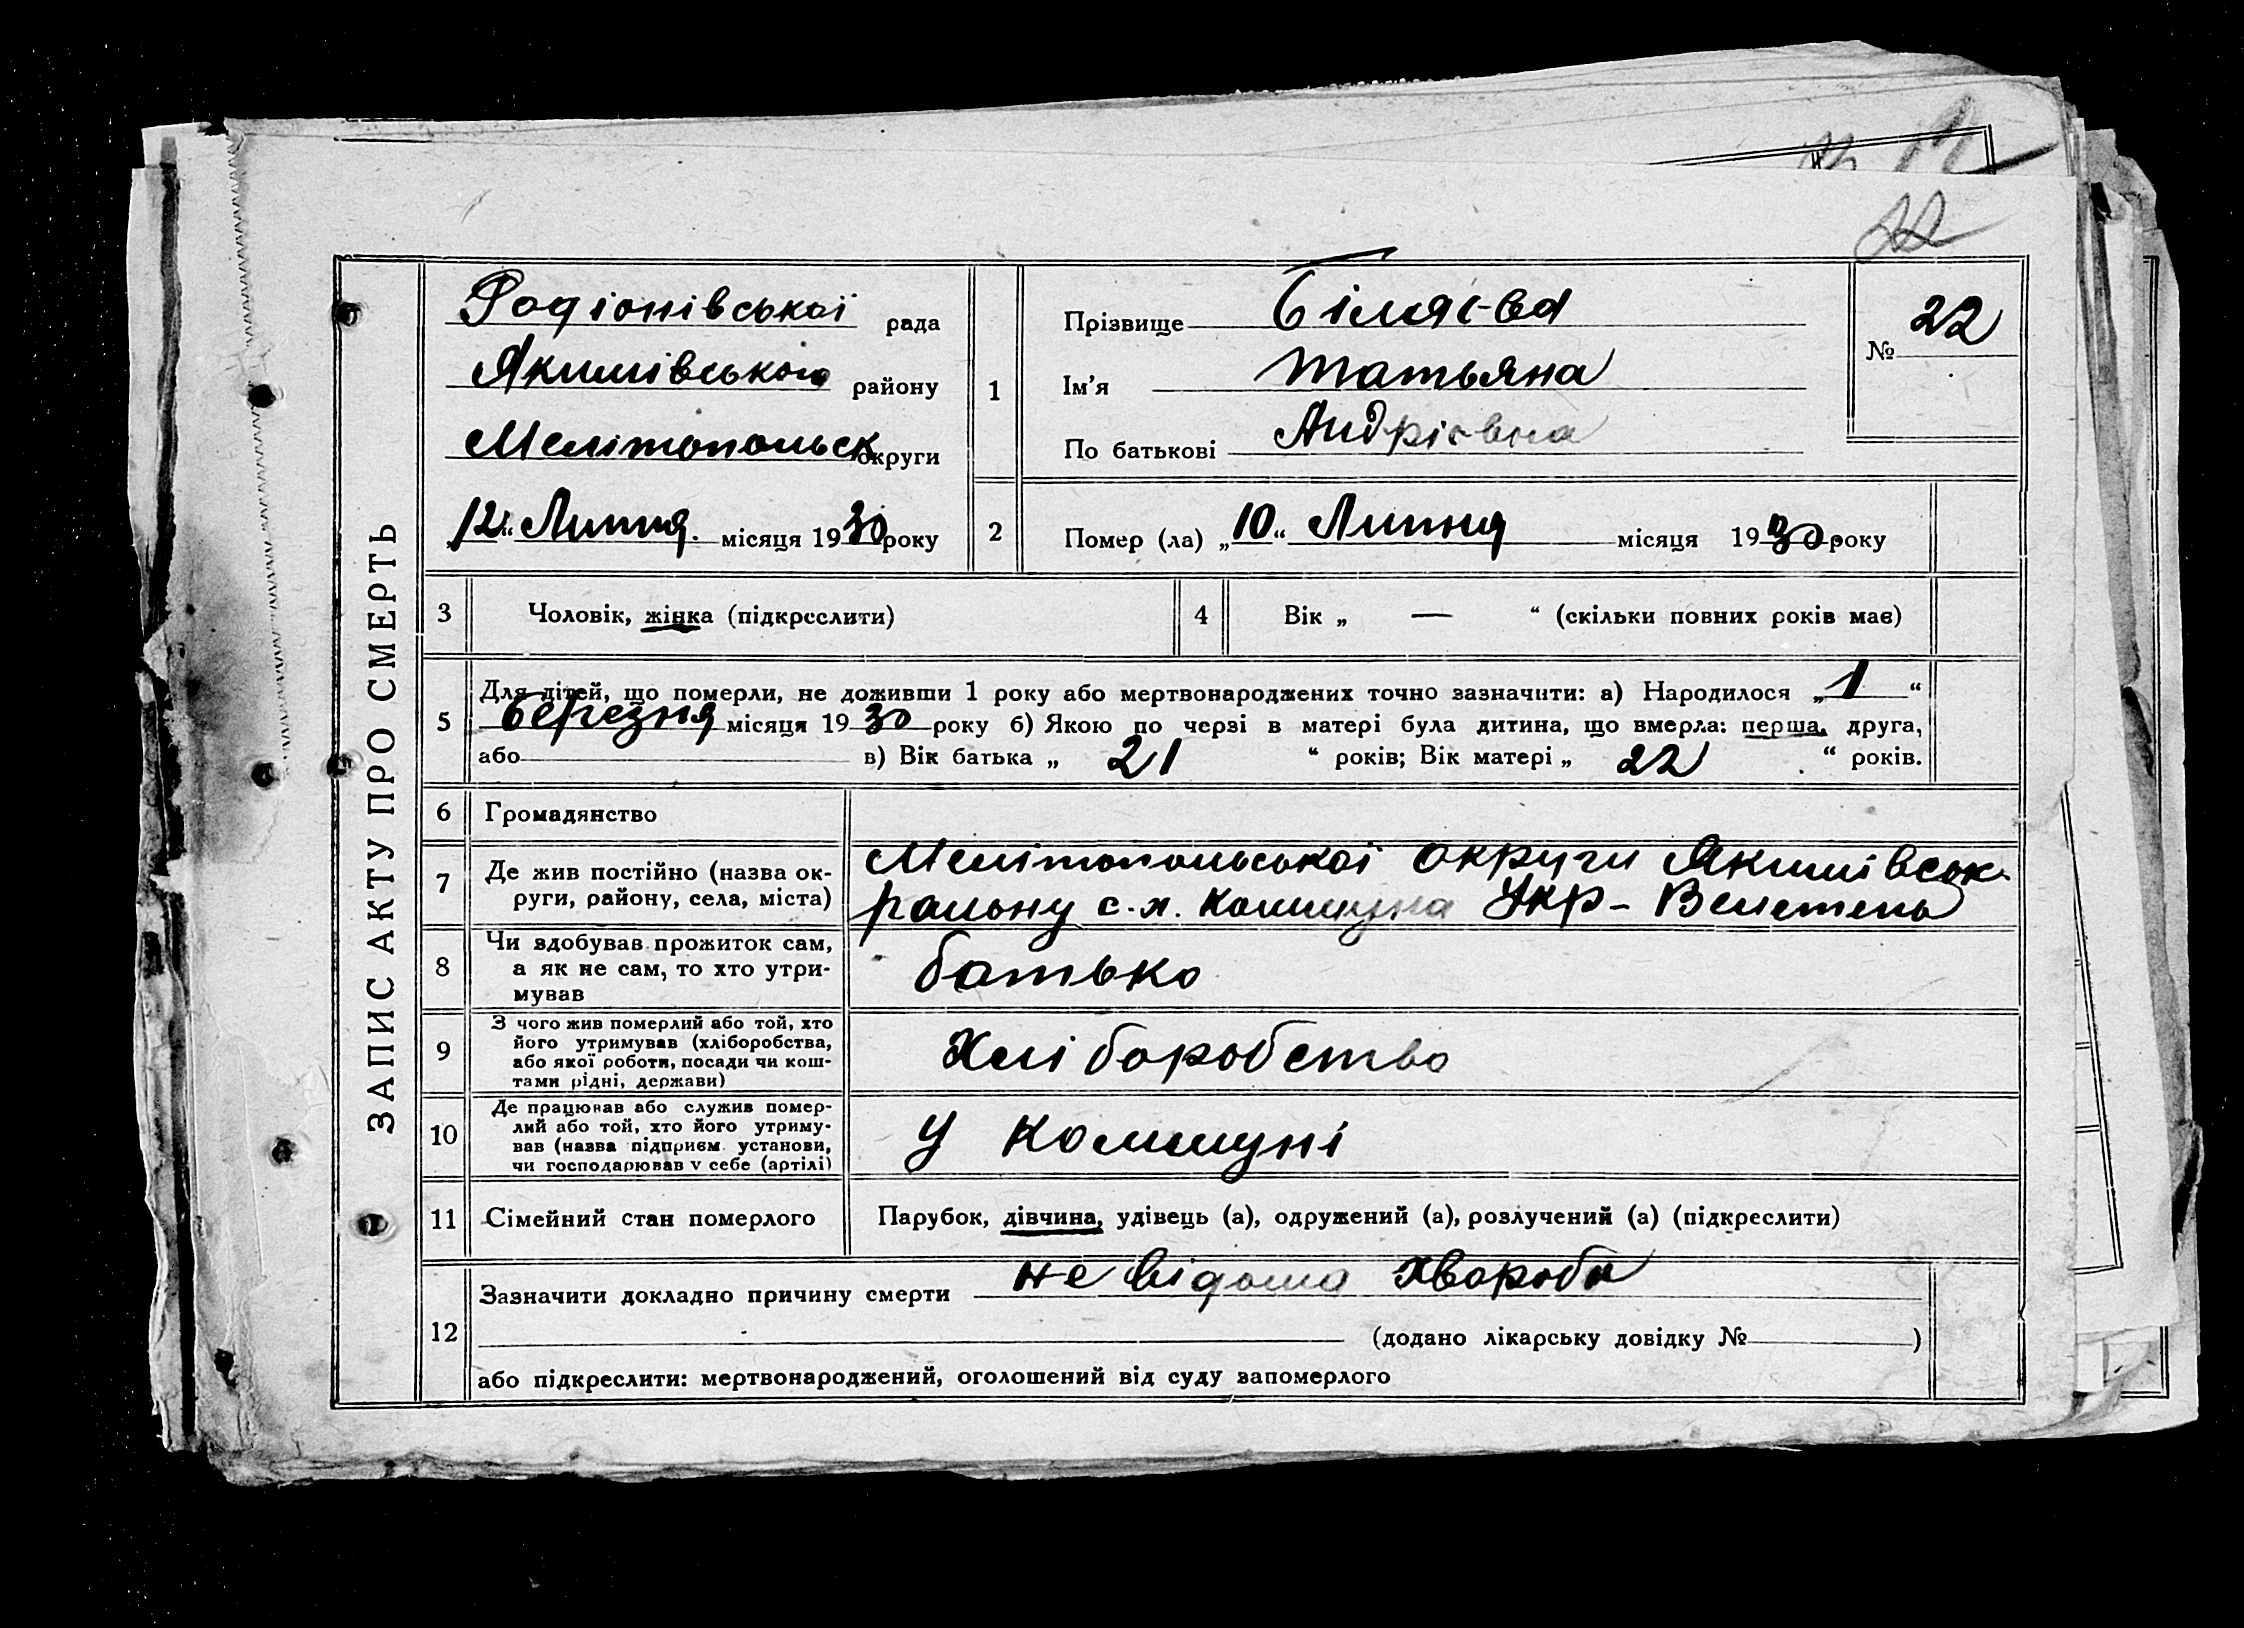 22
ЗАПИС АКТУ ПРО СМЕРТЬ
Родіонівської рада
Якимівського району
Мелітопольск округи
„12“ Липня місяця 1930 року
1
Прізвище Біляєва
Ім'я Татьяна
По батькові Андрієвна
№ 22
2
Помер (ла) „10“ Липня місяця 1930 року
3 Чоловік, жінка (підкреслити)
4 Вік „ — “ (скільки повних років має)
5
Для дітей, що померли, не доживши 1 року або мертвонароджених точно зазначити: а) Народилося „1“
Березня місяця 1930 року б) Якою по черзі в матері була дитина, що вмерла: перша, друга,
або в) Вік батька „21“ років; Вік матері „22“ років.
6 Громадянство
7
Де жив постійно (назва ок-
руги, району, села, міста)
Мелітопольської округи Якимівськ.
району с. Комуна Укр-
8
Чи здобував прожиток сам,
а як не сам, то хто утри-
мував
батько
9
З чого жив померлий або той, хто
його утримував (хліборобства,
або якої роботи, посади чи кош-
тами рідні, держави)
Хліборобство
10
Де працював або служив помер-
лий або той, хто його утриму-
вав (назва підприєм. установи,
чи господарював у себе (артілі)
У Комуні
11 Сімейний стан померлого
Парубок, дівчина, удівець (а), одружений (а), розлучений (а) (підкреслити)
12
Зазначити докладно причину смерти не відома хвороба
(додано лікарську довідку № )
або підкреслити: мертвонароджений, оголошений від суду запомерлого